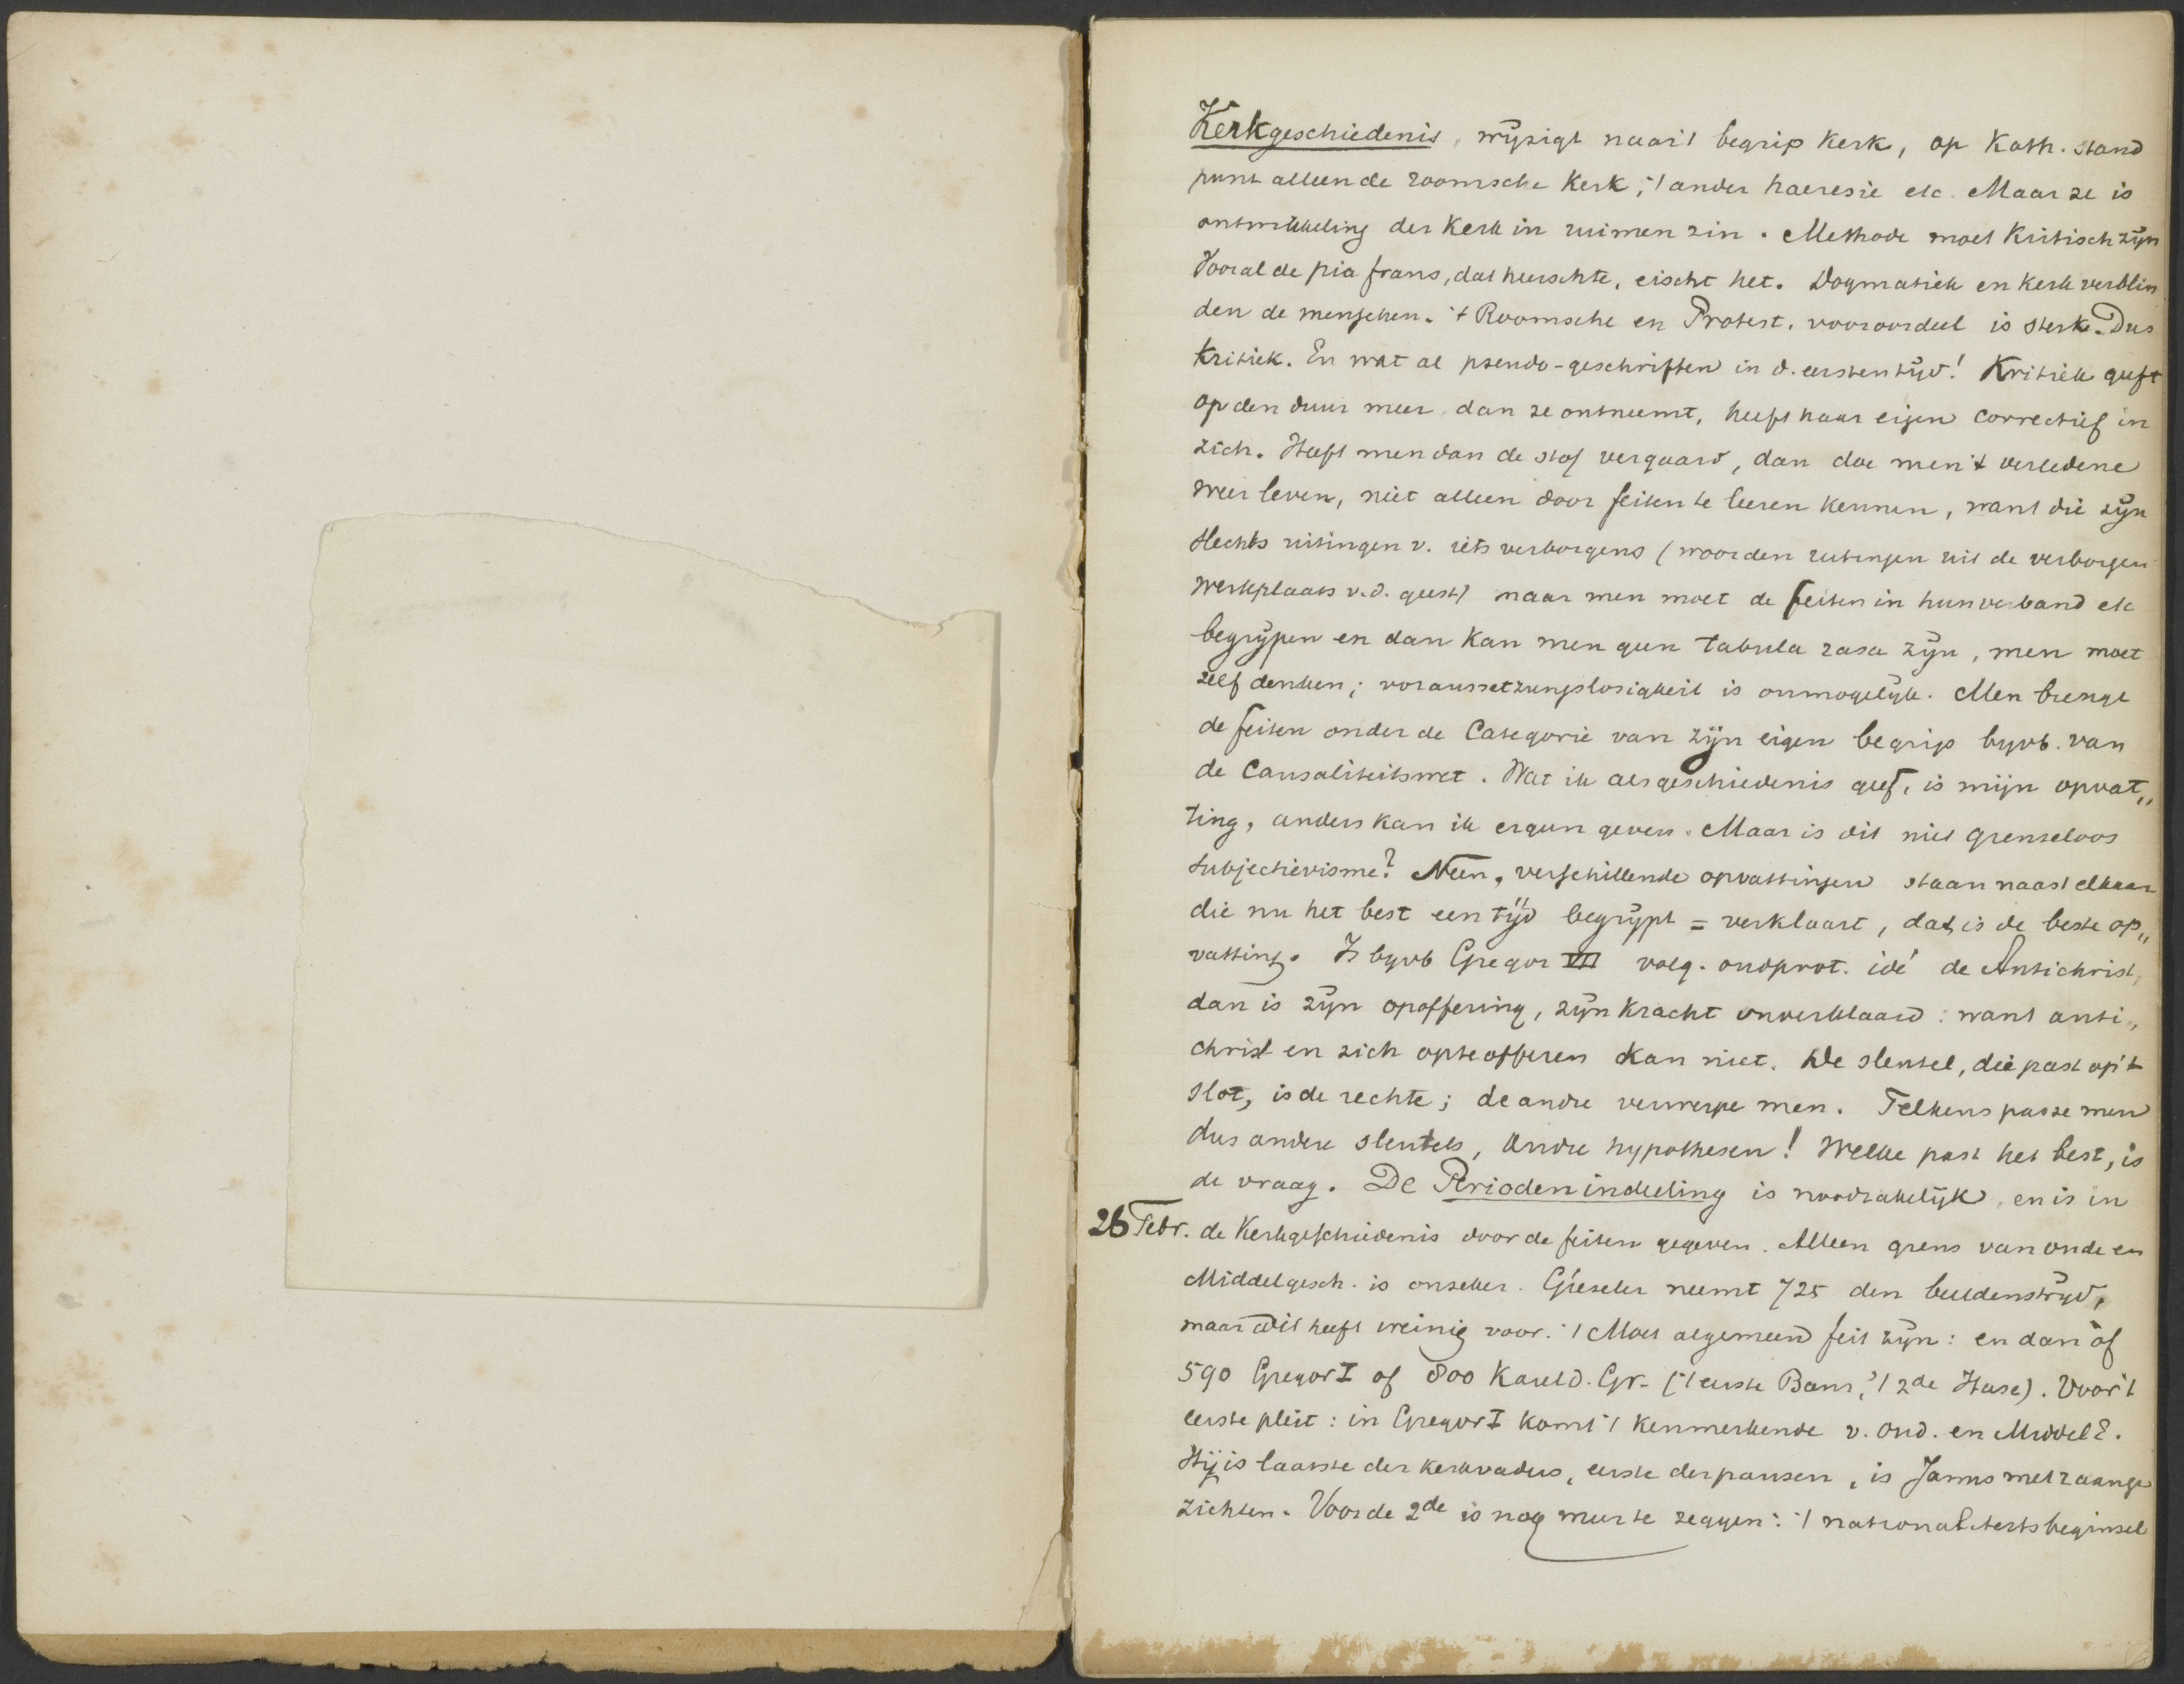 Kerkgeschiedenis, wijzigt naar 't begrip Kerk, op Kath. stand
punt alleen de roomsche Kerk, 't ander haeresie etc. Maar ze is
ontwikkeling der Kerk in ruimen zin. Methode moet Kritisch zijn
Vooral de pia fraus, dat heerschte, eischt het. Dogmatiek en Kerk verblin
den de menschen. 't Roomsche en Protest. vooroordeel is sterk. Dus
Kritiek. En wat al pseudo-geschriften in d. eersten tijd! Kritiek geeft
op den duur meer dan ze ontneemt, heeft haar eigen correctief in
zich. Heeft men dan de stof vergaard, dan doe men 't verledene
weer leven, niet alleen door feiten te leeren kennen, want die zijn
slechts uitingen v. iets verborgens (woorden uitingen uit de verborgen
werkplaats v.d. geest) maar men moet de feiten in hun verband etc
begrijpen en dan kan men geen tabula rasa zijn, men moet
zelf denken; voraussetzungslosigkeit is onmogelijk. Men brenge
de feiten onder de Categorie van zijn eigen begrip bijvb. van
de Causaliteitswet. Wat ik als geschiedenis geef, is mijn opvat„
ting, anders kan ik er geen geven. Maar is dit niet grenseloos
subjectievisme? Neen, verschillende opvattingen staan naast elkaar
die nu het best een tijd begrijpt = verklaart, dat is de beste op„
vatting. Is bijvb Gregor VII volg. oudprot. idé de Antichrist,
dan is zijn opoffering, zijn kracht onverklaard: want anti„
christ en zich opte offeren kan niet. De sleutel, die past op 't
slot, is de rechte; de andre verwerpe men. Telkens passe men
dus andere sleutels, andre hypothesen! Welke past het best, is
de vraag. De Periodenindeeling is noodzakelijk, en is in
26 Febr. de Kerkgeschiedenis door de feiten gegeven. Alleen grens van oude en
Middelgesch. is onzeker. Gieseler neemt 725 den beeldenstrijd,
maar dit heeft weinig voor. 't Moet algemeen feit zijn: en dan òf
590 Gregor I of 800 Karel d. Gr. ('t eerste Baur, 't 2de Hase). Voor 't
eerste pleit: in Gregor I komt 't kenmerkende v. Oud. en Middel E.
Hij is laatste der kerkvaders, eerste der pausen, is Janus met 2 aange
zichten. Voor de 2de is nog meer te zeggen: 't nationaliteitsbeginsel